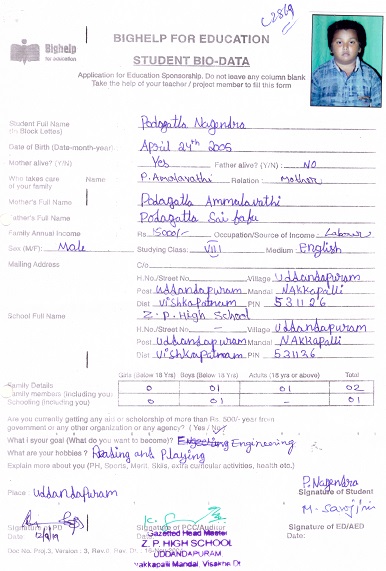 C2869
Bighelp
for education
BIGHELP FOR EDUCATION
STUDENT BIO-DATA
Application for Education Sponsorship. Do not leave any column blank
Take the help of your teacher / project member to fill this form
Student Full Name Podagatla Nagendra
(In Block Letters)
Date of Birth (Date-month-year) April 24th 2005
Mother alive? (Y/N) Yes Father alive? (Y/N) : NO
Who takes care Name P. Amalavathi Relation : Mother
of your family
Mother's Full Name Podagatla Ammalavathi
Father's Full Name Podagatla Sai babu
Family Annual Income Rs. 15000/- Occupation/Source of Income : Labour
Sex (M/F): Male Studying Class: VIII Medium English
Mailing Address C/o
H.No./Street No. Village Uddandapuram
Post Uddandapuram Mandal NAKKapalli
Dist Vishkapatnam PIN 531126
School Full Name Z.P. High School
H.No./Street No. – Village Uddandapuram
Post Uddandapuram Mandal NAKKapalli
Dist Vishkapatnam PIN 531126
Girls (below 18 Yrs) Boys (Below 18 Yrs) Adults (18 yrs or above) Total
Family Details
Family members (including you) 0 01 01 02
Schooling (including you) 0 01 - 01
Are you currently getting any aid or scholarship of more than Rs. 500/- year from
government or any other organization or any agency? ( Yes / No )
What i syour goal (What do you want to become)? Engineering
What are your hobbies? Reading and Playing
Explain more about you (PH, Sports, Merit, Skills, extra curricular activities, health etc.)
P. Nagendra
Place : Uddandapuram Signature of Student
M. Sarojini
Signature of PD Signature of PCC/Auditor Signature of ED/AED
Date: 12/9/19 Date: Date:
Gazetted Head Master
Z. P. HIGH SCHOOL
UDDANDAPURAM
Nakkapalli Mandal, Visakha Dt